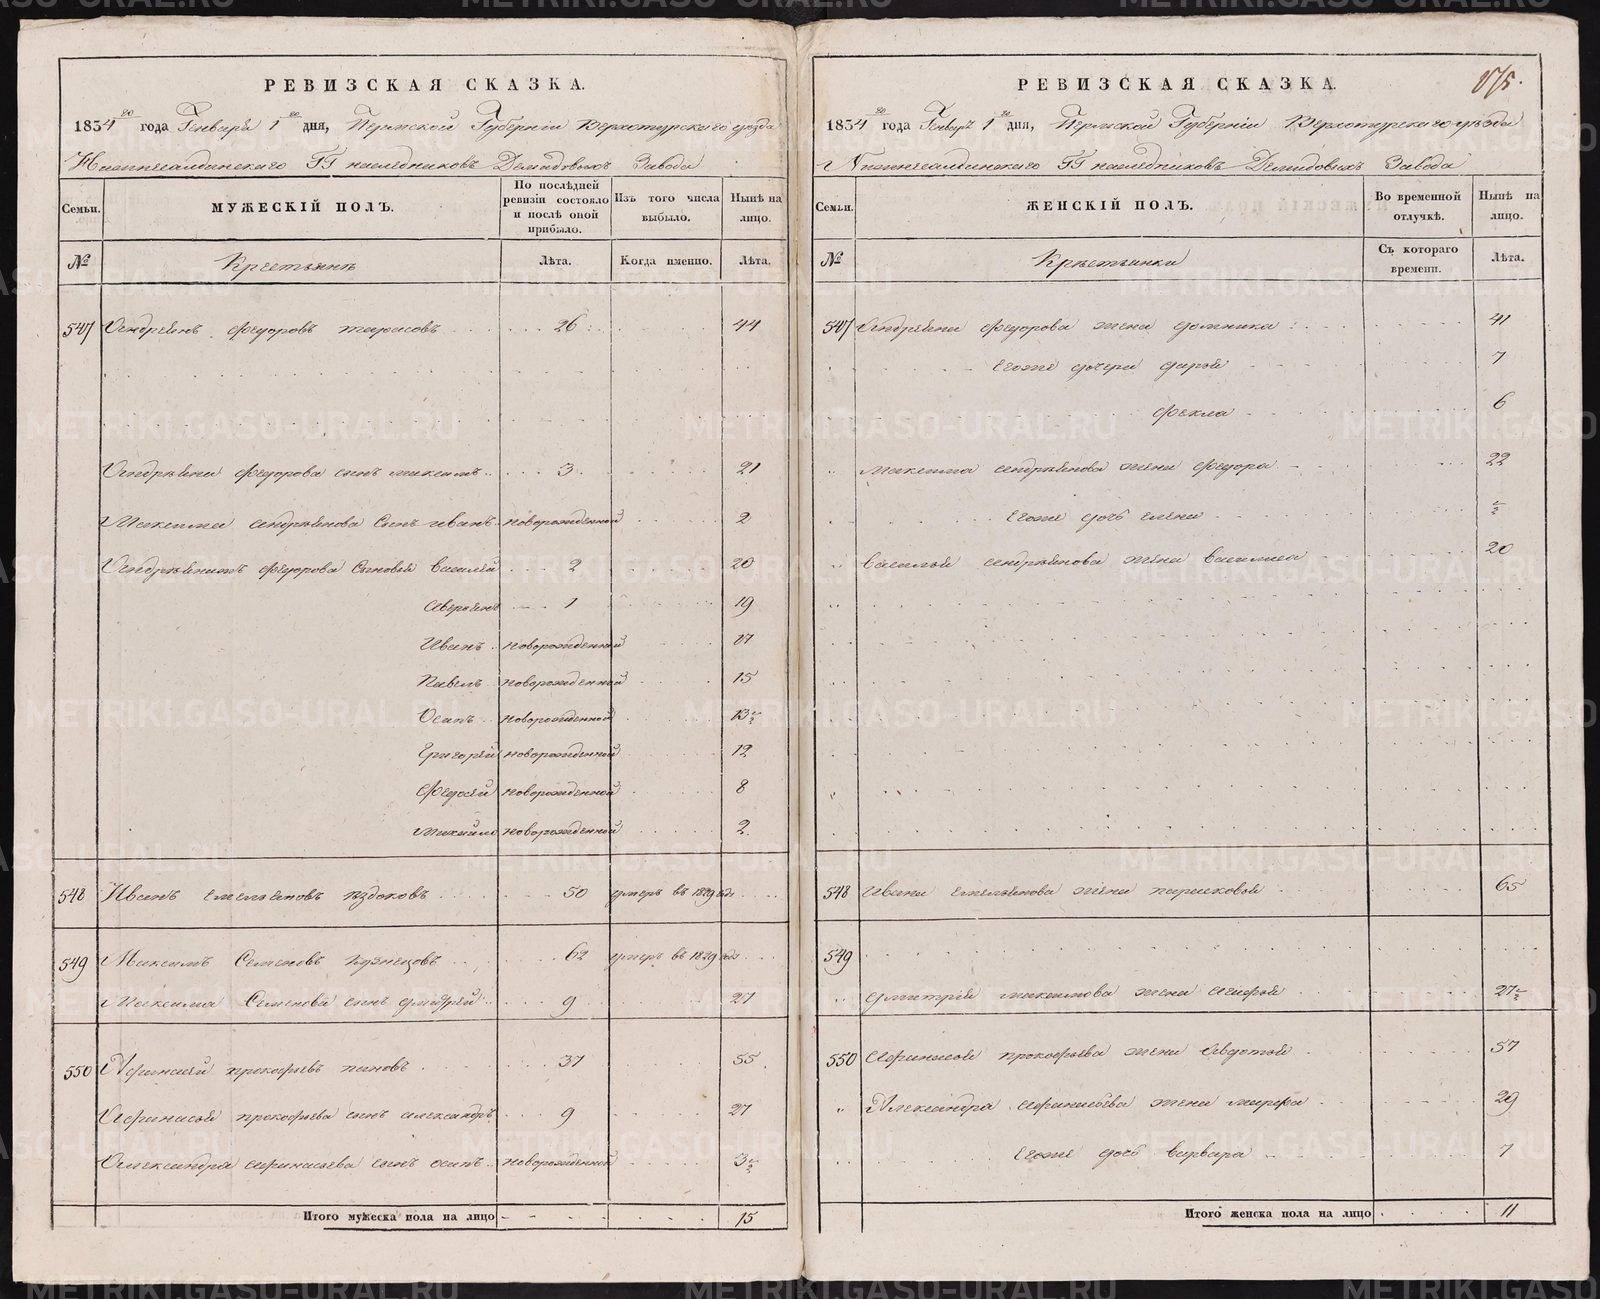 РЕВИЗСКАЯ СКАЗКА.
1834 го года Генваря 1 го дня, Пермской Губерніи Верхотурскаго уезда
Нижнесалдинскаго ГГ наследниковъ Демидовыхъ Завода
Семьи.
МУЖЕСКІЙ ПОЛЪ.
По послѣдней ревизіи состояло и послѣ оной прибыло.
Изъ того числа выбыло.
Нынѣ на лицо.
№
Крестьянъ
Лѣта.
Когда именно.
Лѣта.
547 Андреянъ Федоровъ тарасовъ 26 44
Андреяна Федорова сынъ максимъ 3 21
Максима андреянова сынъ иванъ новорожденной 2
Андреяна Федорова сыновья василей 2 20
Аверьянъ 1 19
Иванъ новорожденной 17
Павелъ новорожденной 15
Осипъ новорожденной 13 ½
Григорей новорожденной 12
Федосей новорожденной 8
михаилъ новорожденной 2
548 Иванъ емельяновъ 50 умеръ въ 1829 годе
549 Максимъ Семеновъ кузнецовъ 62 умеръ въ 1829 годе
Максима Семенова сынъ дмитрей 9 27
550 Афанасей прокофьевъ пановъ 37 55
Афанасья прокофьева сынъ александръ 9 27
Александра афанасьева сынъ осипъ новорожденной 3 ½
Итого мужеска пола на лицо 15
175.
РЕВИЗСКАЯ СКАЗКА.
1834 го года Генваря 1 го дня, Пермской Губерніи Верхотурскаго уезда
Нижнесалдинскаго ГГ наследниковъ Демидовыхъ Завода
Семьи.
ЖЕНСКІЙ ПОЛЪ.
Во временной отлучкѣ.
Нынѣ на лицо.
№
Крестьянки
Съ котораго времени.
Лѣта.
547 Андреяна федорова жена домника 41
Егоже дочери дарья 7
Фекла 6
максима андреянова жена федора 22
Егоже дочь елена ½
василья андреянова жена василиса 20
548 Ивана емельянова жена парасковья 65
549
дмитрея максимова жена 27 ½
550 Афанасья прокофьева жена Авдотья 57
Александра афанасьева жена марфа 29
Егоже дочь варвара 7
Итого женска пола на лицо 11
METRIKI.GASO-URAL.RU